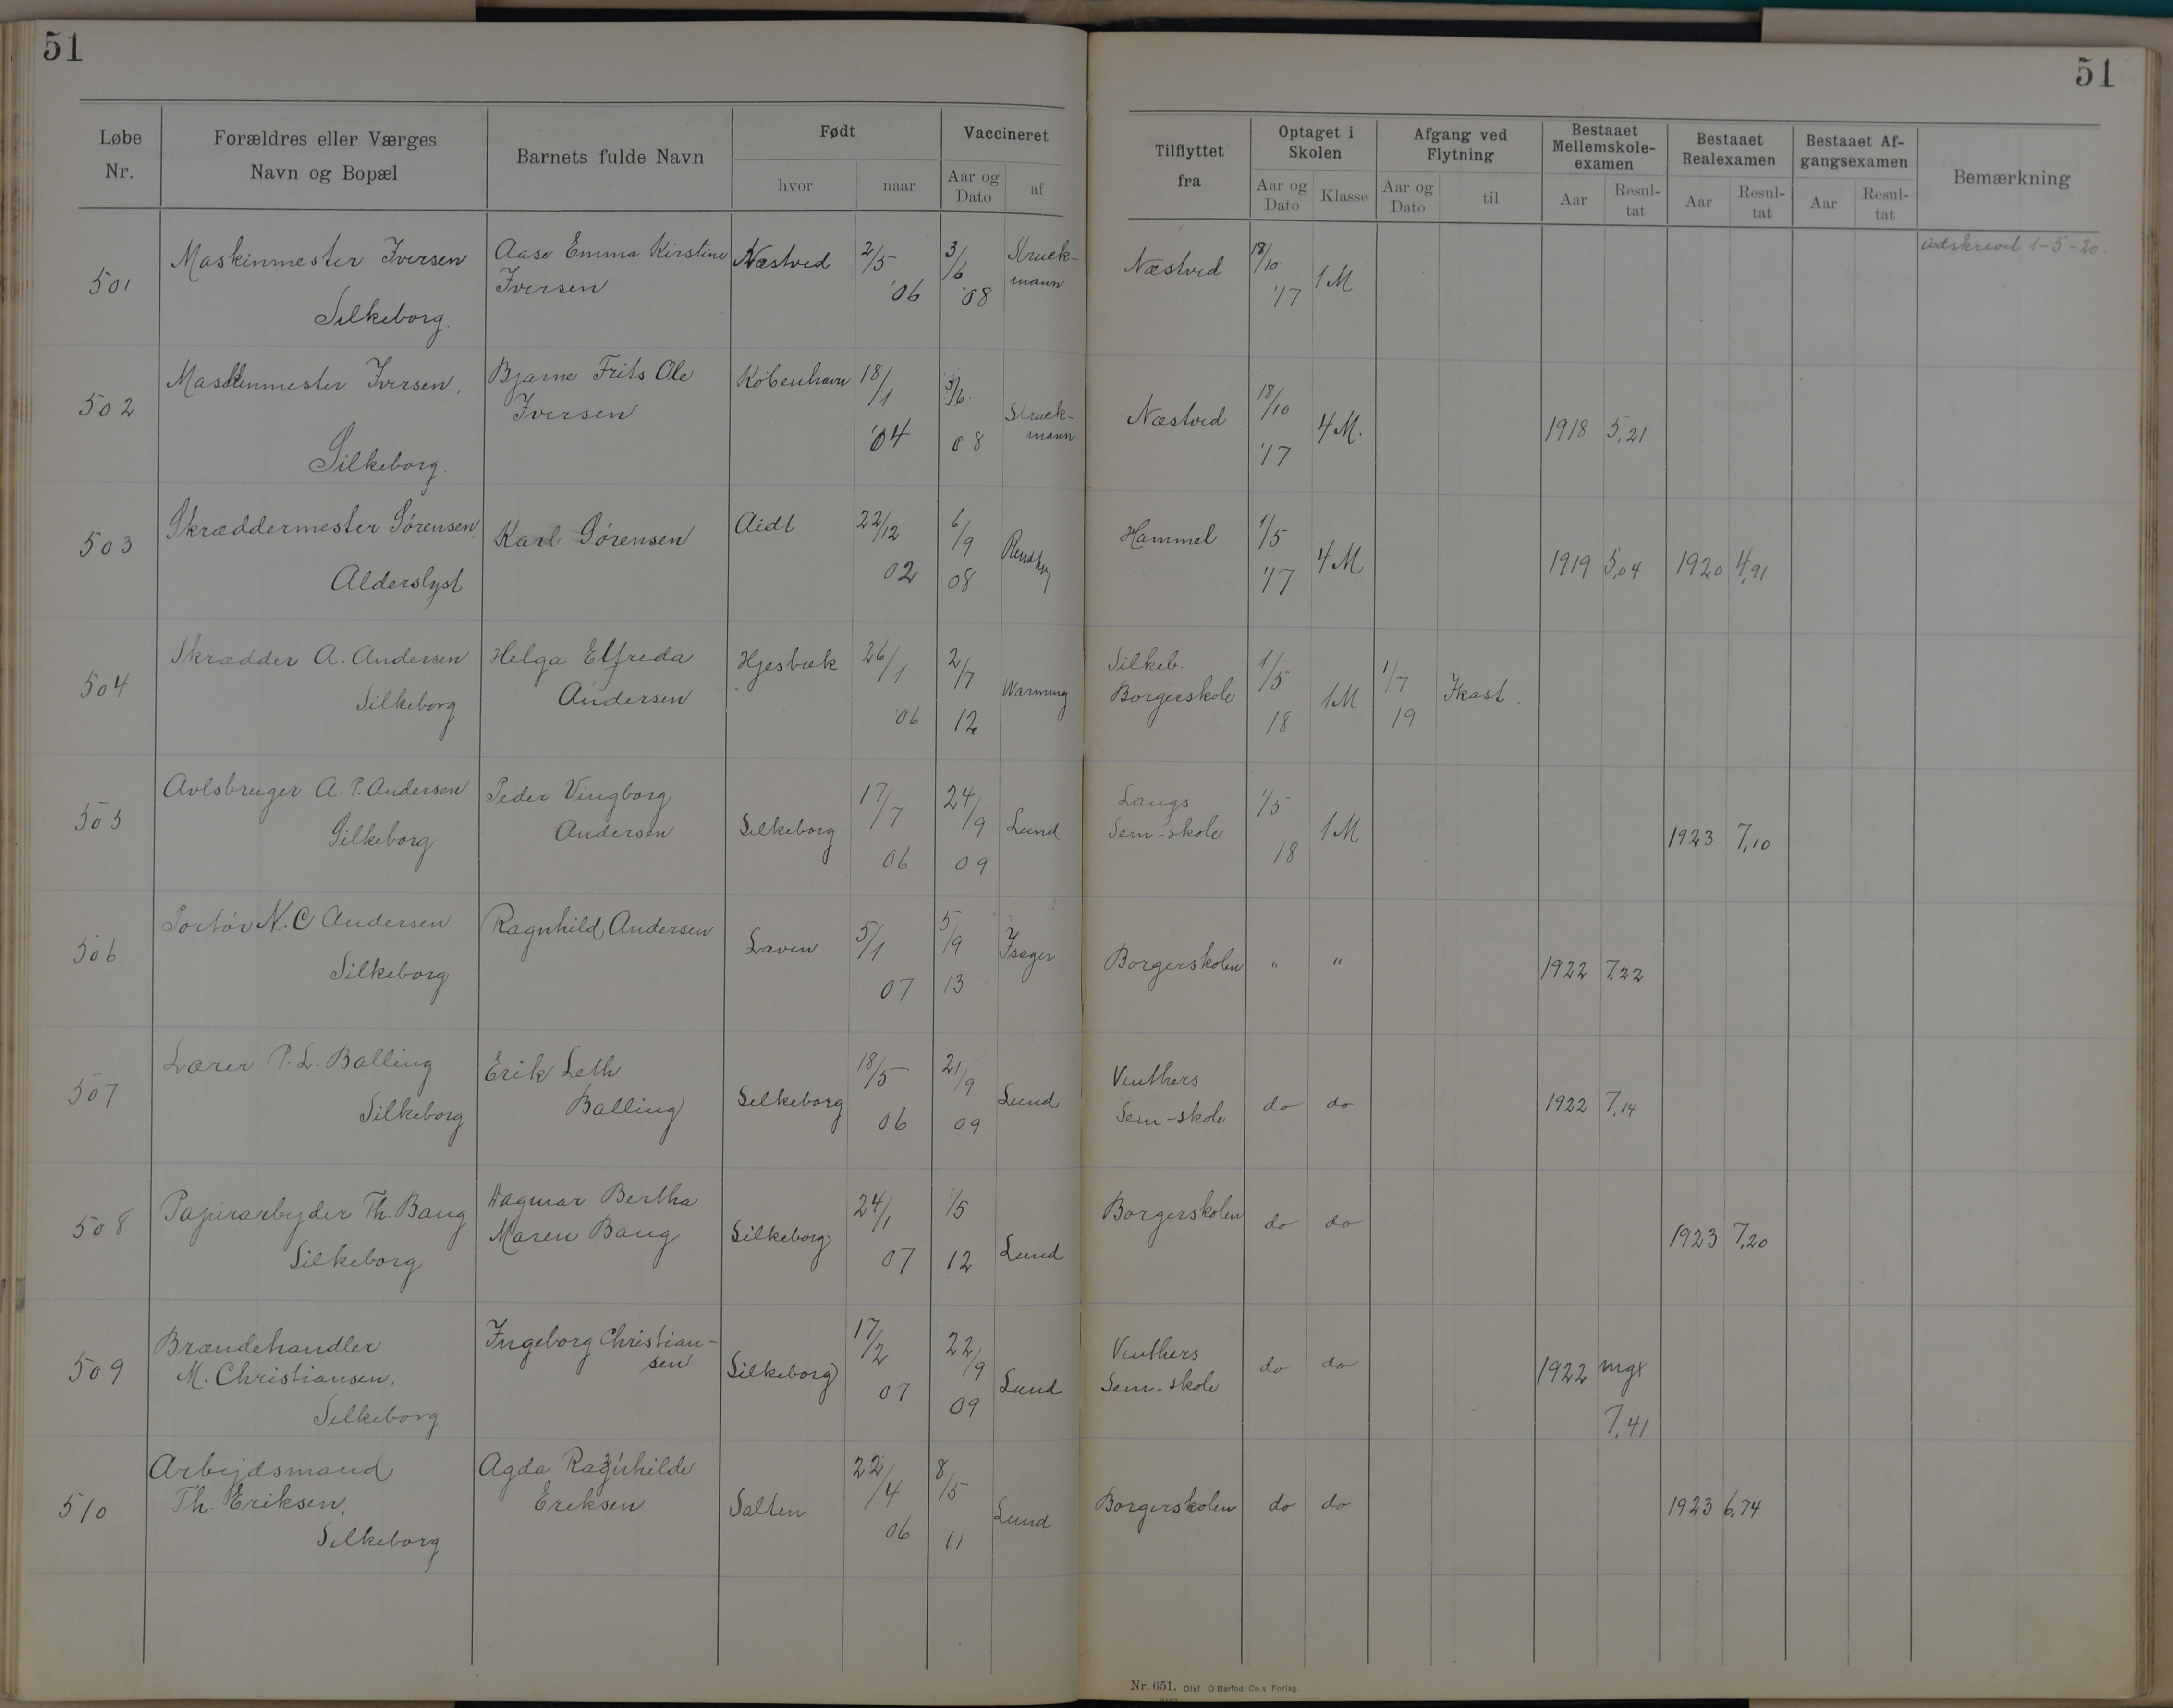 51
51
Løbe Nr.
Forældres eller Værges Navn og Bopæl
Barnets fulde Navn
Født
hvor
naar
Vaccineret
Aar og Dato
af
Tilflyttet fra
Optaget i Skolen
Aar og Dato
Klasse
Afgang ved Flytning
Aar og Dato
til
Bestaaet Mellemskole-examen
Aar
Resul-tat
Bestaaet Realexamen
Aar
Resul-tat
Bestaaet Af-gangsexamen
Aar
Resul-tat
Bemærkning
501 Maskinmester Iversen Aase Emma Kirstine Næstved 2/5 3/6 Struck- Næstved 18/10 1M udskrevet 1-5-20.
Silkeborg. Iversen '06 '08 mann '17
502 Maskinmester Iversen, Bjarne Frits Ole København 18/1 3/6 Struck- Næstved 18/10 4M. 1918 5,21
Silkeborg. Iversen '04 08 mann '17
503 Skræddermester Sørensen, Karl Sørensen Aidt 22/12 6/9 Hammel 1/5 4M 1919 5,04 1920 4,91
Alderslyst 02 08 '17
504 Skrædder A. Andersen Helga Elfreda Hjesbæk 26/1 2/7 Warming Silkeb. 1/5 1M 1/7 Ikast.
Silkeborg Andersen '06 12 Borgerskole 18 19
505 Avlsbruger A. P. Andersen Peder Vingborg Silkeborg 17/7 24/9 Lund Langs 1/5 1M 1923 7,10
Silkeborg Andersen 06 09 Sem-skole 18
506 Portør N. C Andersen Ragnhild Andersen Laven 5/1 5/9 Isager Borgerskolen " " 1922 7,22
Silkeborg 07 13
507 Lærer P. L. Balling Erik Leth Silkeborg 18/5 21/9 Lund Vinthers do do 1922 7,14
Silkeborg Balling 06 09 Sem-skole
508 Papirarbejder Th. Bang Dagmar Bertha Silkeborg 24/1 1/5 Lund Borgerskolen do do 1923 7,20
Silkeborg Maren Bang 07 12
509 Brændehandler Ingeborg Christian- Silkeborg 17/2 22/9 Lund Vinthers do do 1922 mgx
M. Christiansen, sen 07 09 Sem-skole 7,41
Silkeborg
510 Arbejdsmand Agda Ragnhilde Salten 22/4 8/5 Lund Borgerskolen do do 1923 6,74
Th. Eriksen, Eriksen 06 11
Silkeborg
Nr. 651. Olaf O Barfod Co.s Forlag.